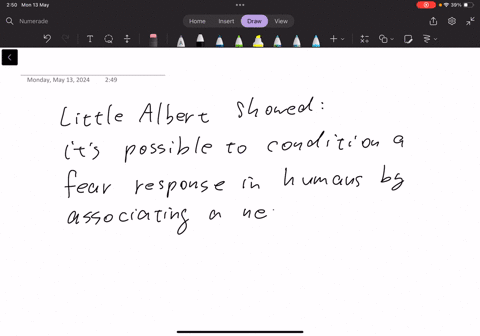 2:50 Mon 13 May
39%
Numerade
Home Insert Draw View
Monday, May 13, 2024 2:49
Little Albert showed:
it's possible to condition a
fear response in humans by
associating a ne